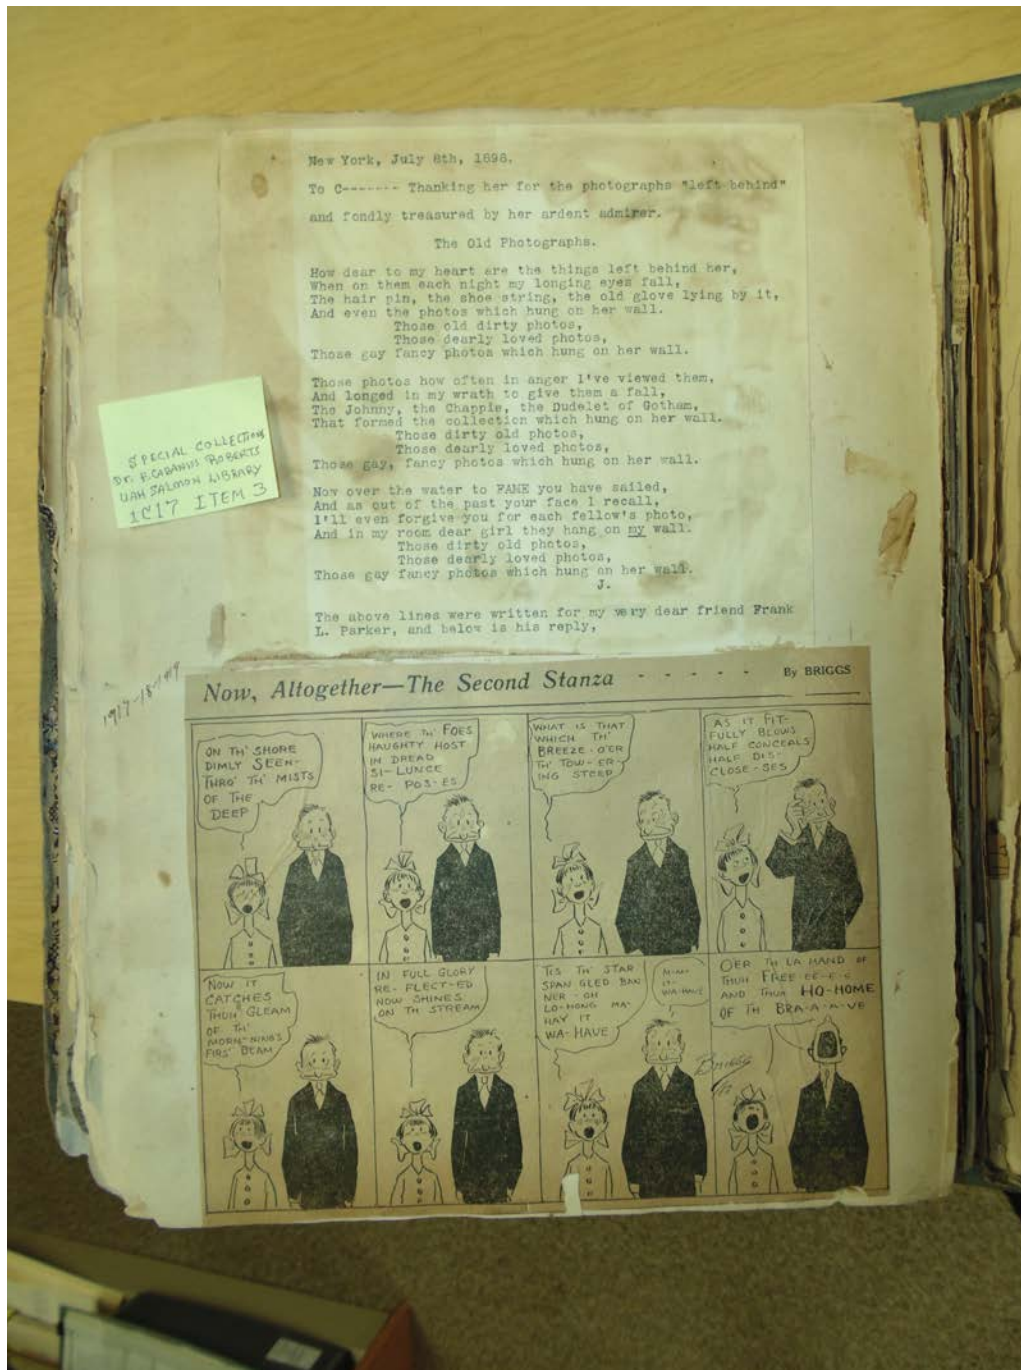 New York, July 8th, 1898.
To C------- Thanking her for the photographs "left behind"
and fondly treasured by her ardent admirer.
The Old Photographs.
How dear to my heart are the things left behind her,
When on them each night my longing eyes fall,
The hair pin, the shoe string, the old glove lying by it,
And even the photos which hung on her wall.
Those old dirty photos,
Those dearly loved photos,
Those gay fancy photos which hung on her wall.
Those photos how often in anger I've viewed them,
And longed in my wrath to give them a fall,
The Johnny, the Chappie, the Dudelet of Gotham,
That formed the collection which hung on her wall.
Those dirty old photos,
Those dearly loved photos,
Those gay, fancy photos which hung on her wall.
Now over the water to FAME you have sailed,
And as out of the past your face I recall,
I'll even forgive you for each fellow's photo,
And in my room dear girl they hang on my wall.
Those dirty old photos,
Those dearly loved photos,
Those gay fancy photos which hung on her wall.
J.
The above lines were written for my very dear friend Frank
L. Parker, and below is his reply,
SPECIAL COLLECTIONS
Dr. F. CABANISS ROBERTS
UAH SALMON LIBRARY
1C17 ITEM 3
1917-18-1919
Now, Altogether—The Second Stanza - - - - - By BRIGGS
ON TH' SHORE
DIMLY SEEN-
THRO' TH' MISTS
OF THE
DEEP
WHERE TH' FOES
HAUGHTY HOST
IN DREAD
SI-LUNCE
RE-POS-ES
WHAT IS THAT
WHICH TH'
BREEZE-O'ER
TH' TOW-ER-
ING STEEP
AS IT FIT-
FULLY BLOWS
HALF CONCEALS
HALF DIS-
CLOSE-SES
NOW IT
CATCHES
THUH GLEAM
OF TH'
MORN-NING'S
FIRS' BEAM
IN FULL GLORY
RE-FLECT-ED
NOW SHINES
ON TH STREAM
TIS TH' STAR
SPANGLED BAN
NER-OH
LO-HONG MA-
HAY IT
WA-HAVE
WA-HAVE
OER TH LA HAND OF
THUH FREE-EE-E-E
AND THUH HO-HOME
OF TH BRA-A-A-VE
Briggs